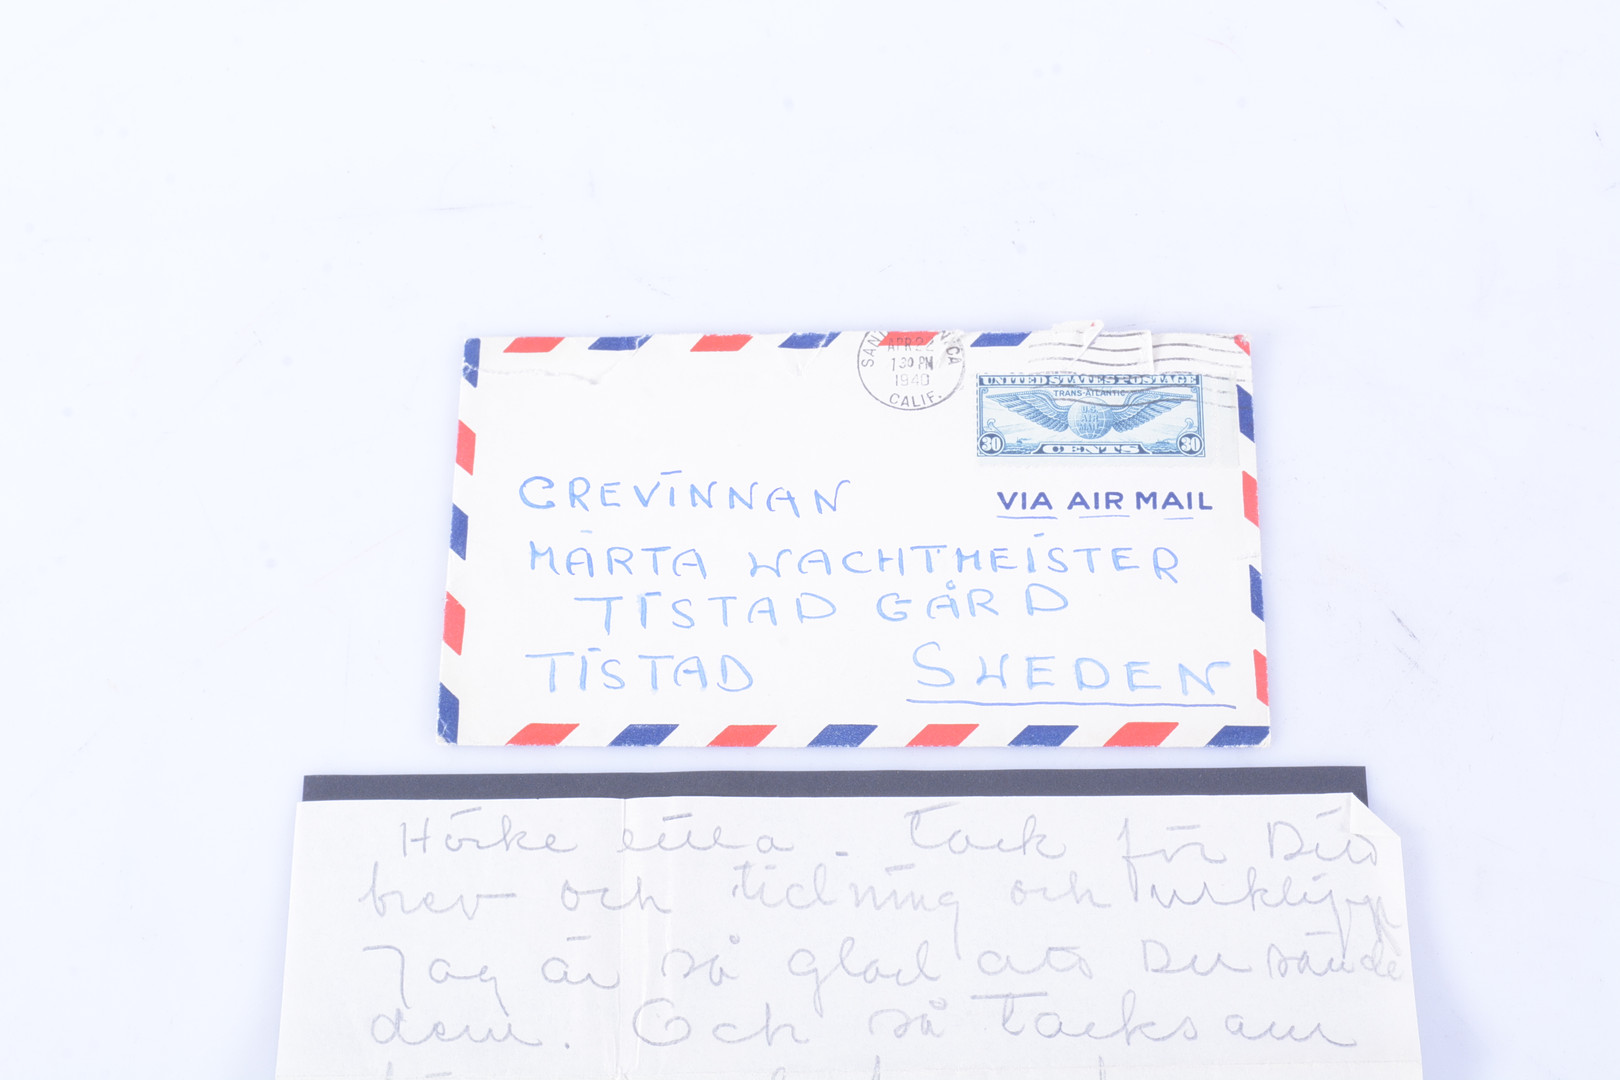 SANTA MONICA
APR 22
1 30 PM
1940
CALIF.
UNITED STATES POSTAGE
TRANS-ATLANTIC
U.S.
AIR
MAIL
30 CENTS 30
VIA AIR MAIL
GREVINNAN
MÄRTA WACHTMEISTER
TISTAD GÅRD
TISTAD SWEDEN
Hörke lilla. Tack för Ditt
brev och tidning och urklipp
Jag är så glad att Du sände
dem. Och så tacksam